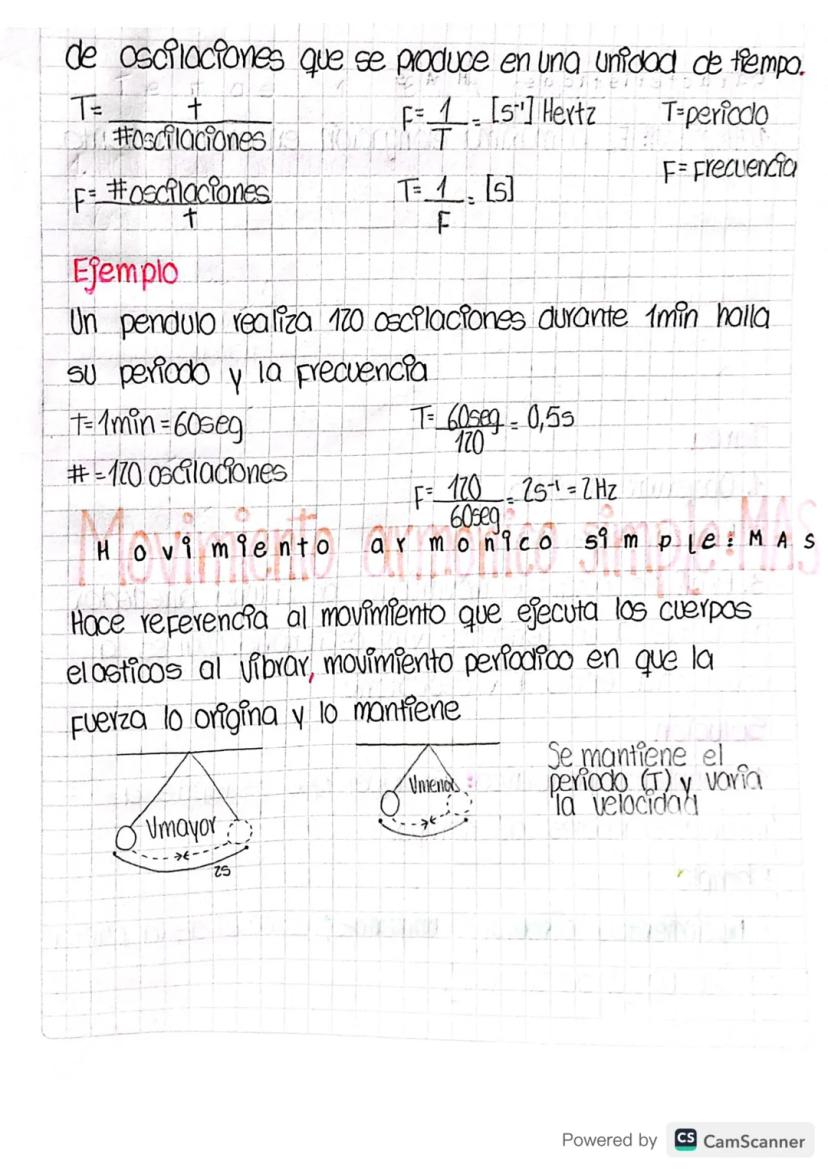 de oscilaciones que se produce en una unidad de tiempo.
T= t / #oscilaciones
F= 1/T = [s⁻¹] Hertz
T=periodo
F= Frecuencia
F= #oscilaciones / t
T= 1/F = [s]
Ejemplo
Un pendulo realiza 120 oscilaciones durante 1min halla
su periodo y la Frecuencia
t=1min=60seg
T= 60seg/120 = 0,5s
#=120 oscilaciones
F= 120/60seg = 2s⁻¹ = 2Hz
Movimiento armonico simple: MAS
Hace referencia al movimiento que ejecuta los cuerpos
elasticos al vibrar, movimiento periodico en que la
Fuerza lo origina y lo mantiene
Vmayor
2s
Vmenor
Se mantiene el
periodo (T) y varia
la velocidad
Powered by CS CamScanner